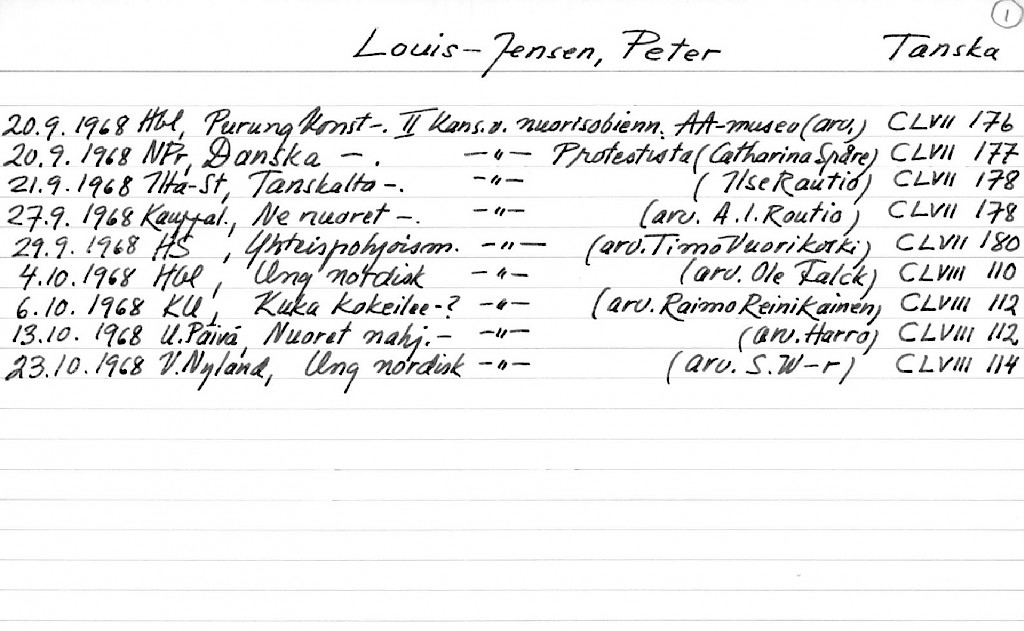 1
Louis-Jensen, Peter Tanska
20.9.1968 Hbl, Purung Konst-. II Kans.v. nuorisobienn. AA-museo (arv.) CLVII 176
20.9.1968 NPr, Danska -. -"- Protestista (Catharina Spåre) CLVII 177
21.9.1968 Ilta-St, Tanskalta-. -"- (Ilse Rautio) CLVII 178
27.9.1968 Kauppal., Ne nuoret-. -"- (arv. A.I. Routio) CLVII 178
29.9.1968 HS, Yhteispohjoism. -"- (arv. Timo Vuorikoski) CLVII 180
4.10.1968 Hbl, Ung nordisk -"- (arv. Ole Falck) CLVIII 110
6.10.1968 KU, Kuka kokeilee-? -"- (arv. Raimo Reinikainen) CLVIII 112
13.10.1968 U.Päivä, Nuoret nahj.- -"- (arv. Harro) CLVIII 112
23.10.1968 V.Nyland, Ung nordisk -"- (arv. S.W-r) CLVIII 114